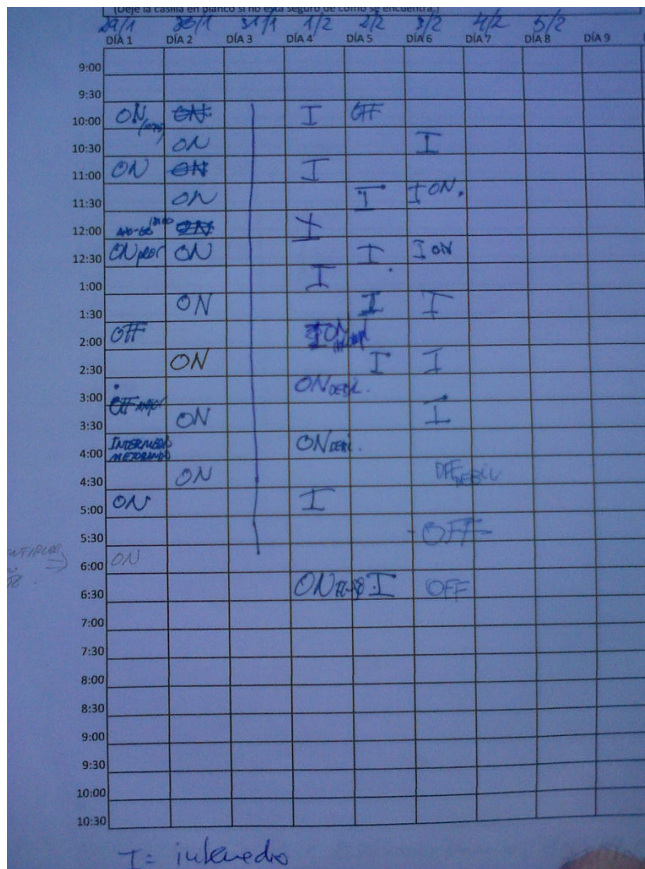 (Deje la casilla en blanco si no está seguro de cómo se encuentra.)
29/1 30/1 31/1 1/2 2/2 3/2 4/2 5/2
DÍA 1 DÍA 2 DÍA 3 DÍA 4 DÍA 5 DÍA 6 DÍA 7 DÍA 8 DÍA 9
9:00
9:30
10:00 ON ON I OFF
10:30 ON I
11:00 ON ON I
11:30 ON I I ON.
12:00 ON I
12:30 ON peor ON I I ON
1:00 I
1:30 ON I I
2:00 OFF I ON
2:30 ON I I
3:00 ON DEBIL.
3:30 OFF mejor ON I
4:00 INTERMEDIO MEJORANDO ON DEBIL.
4:30 ON OFF DEBIL
5:00 ON I
5:30 OFF
6:00 ON
6:30 ON I OFF
7:00
7:30
8:00
8:30
9:00
9:30
10:00
10:30
I = intermedio